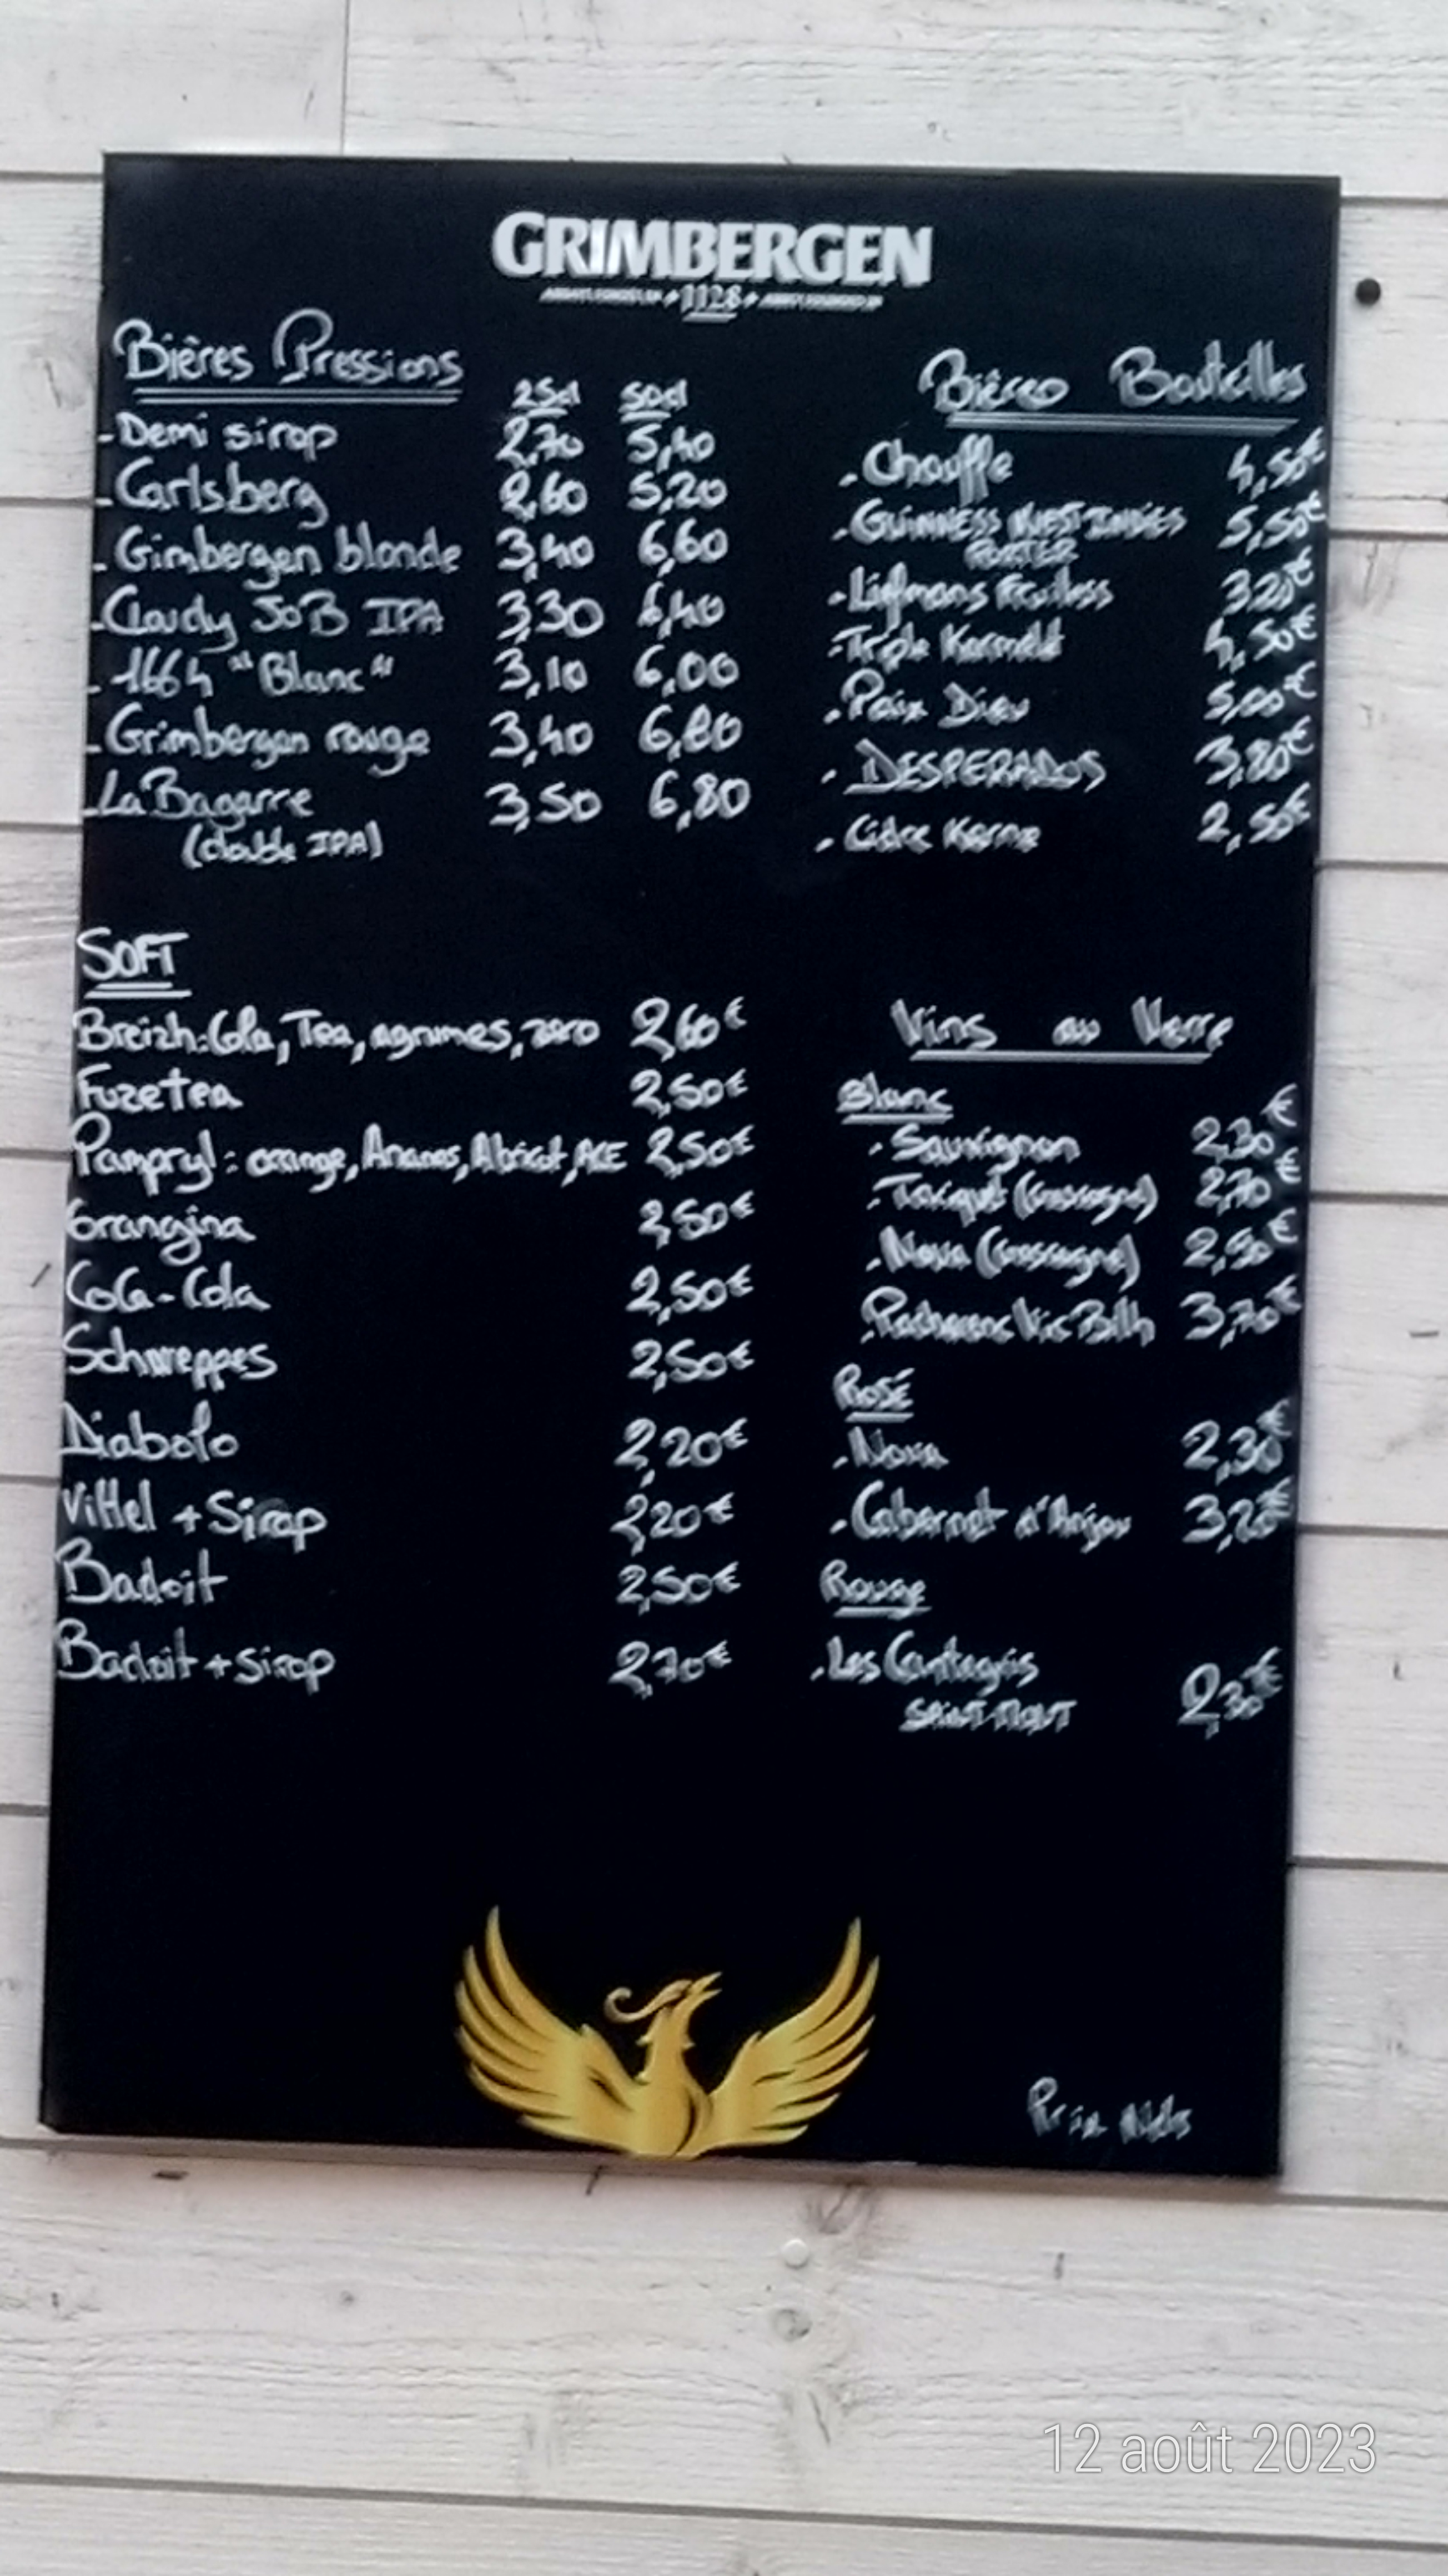 GRIMBERGEN
1128
Bières Pressions
25cl 50cl
- Demi sirop 2,70 5,40
- Carlsberg 2,60 5,20
- Gimbergen blonde 3,40 6,60
- Cloudy JOB IPA 3,30 6,40
- 1664 "Blanc" 3,10 6,00
- Grimbergen rouge 3,40 6,80
- La Bagarre 3,50 6,80
(double IPA)
SOFT
Breizh: Cola, Tea, agrumes, zero 2,60€
Fuzetea 2,50€
Pampryl: orange, Ananas, Abricot, ACE 2,50€
Orangina 2,50€
CoCa-Cola 2,50€
Schweppes 2,50€
Diabolo 2,20€
Vittel + Sirop 2,20€
Badoit 2,50€
Badoit + Sirop 2,70€
Bières Bouteilles
- Chouffe 4,50€
- GUINNESS WEST INDIES 5,50€
PORTER
- Liefmans Fruitess 3,20€
- Triple Karmeliet 4,50€
- Paix Dieu 5,00€
- DESPERADOS 3,80€
- Cidre Kerne 2,50€
Vins au Verre
Blanc
- Sauvignon 2,30€
- Tariquet (Gascogne) 2,70€
- Nova (Gascogne) 2,50€
- Pacherenc Vic Bilh 3,70€
ROSÉ
- Nova 2,30€
- Cabernet d'Anjou 3,20€
Rouge
- Les 2,30€
SAINT-MONT
Prix Nets
12 août 2023